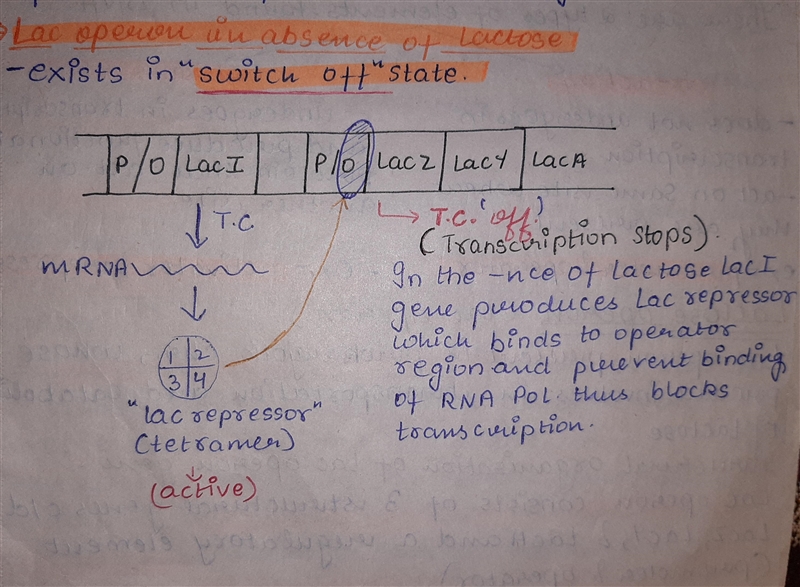 Lac operon in absence of Lactose
- exists in "switch off" state.
P/O LacI P/O LacZ LacY LacA
T.C
T.C. 'off'
(Transcription stops).
mRNA
In the -nce of lactose LacI
gene produces Lac repressor
which binds to operator
region and prevent binding
of RNA Pol. thus blocks
transcription.
1 2
3 4
"lac repressor"
(tetramer)
(active)